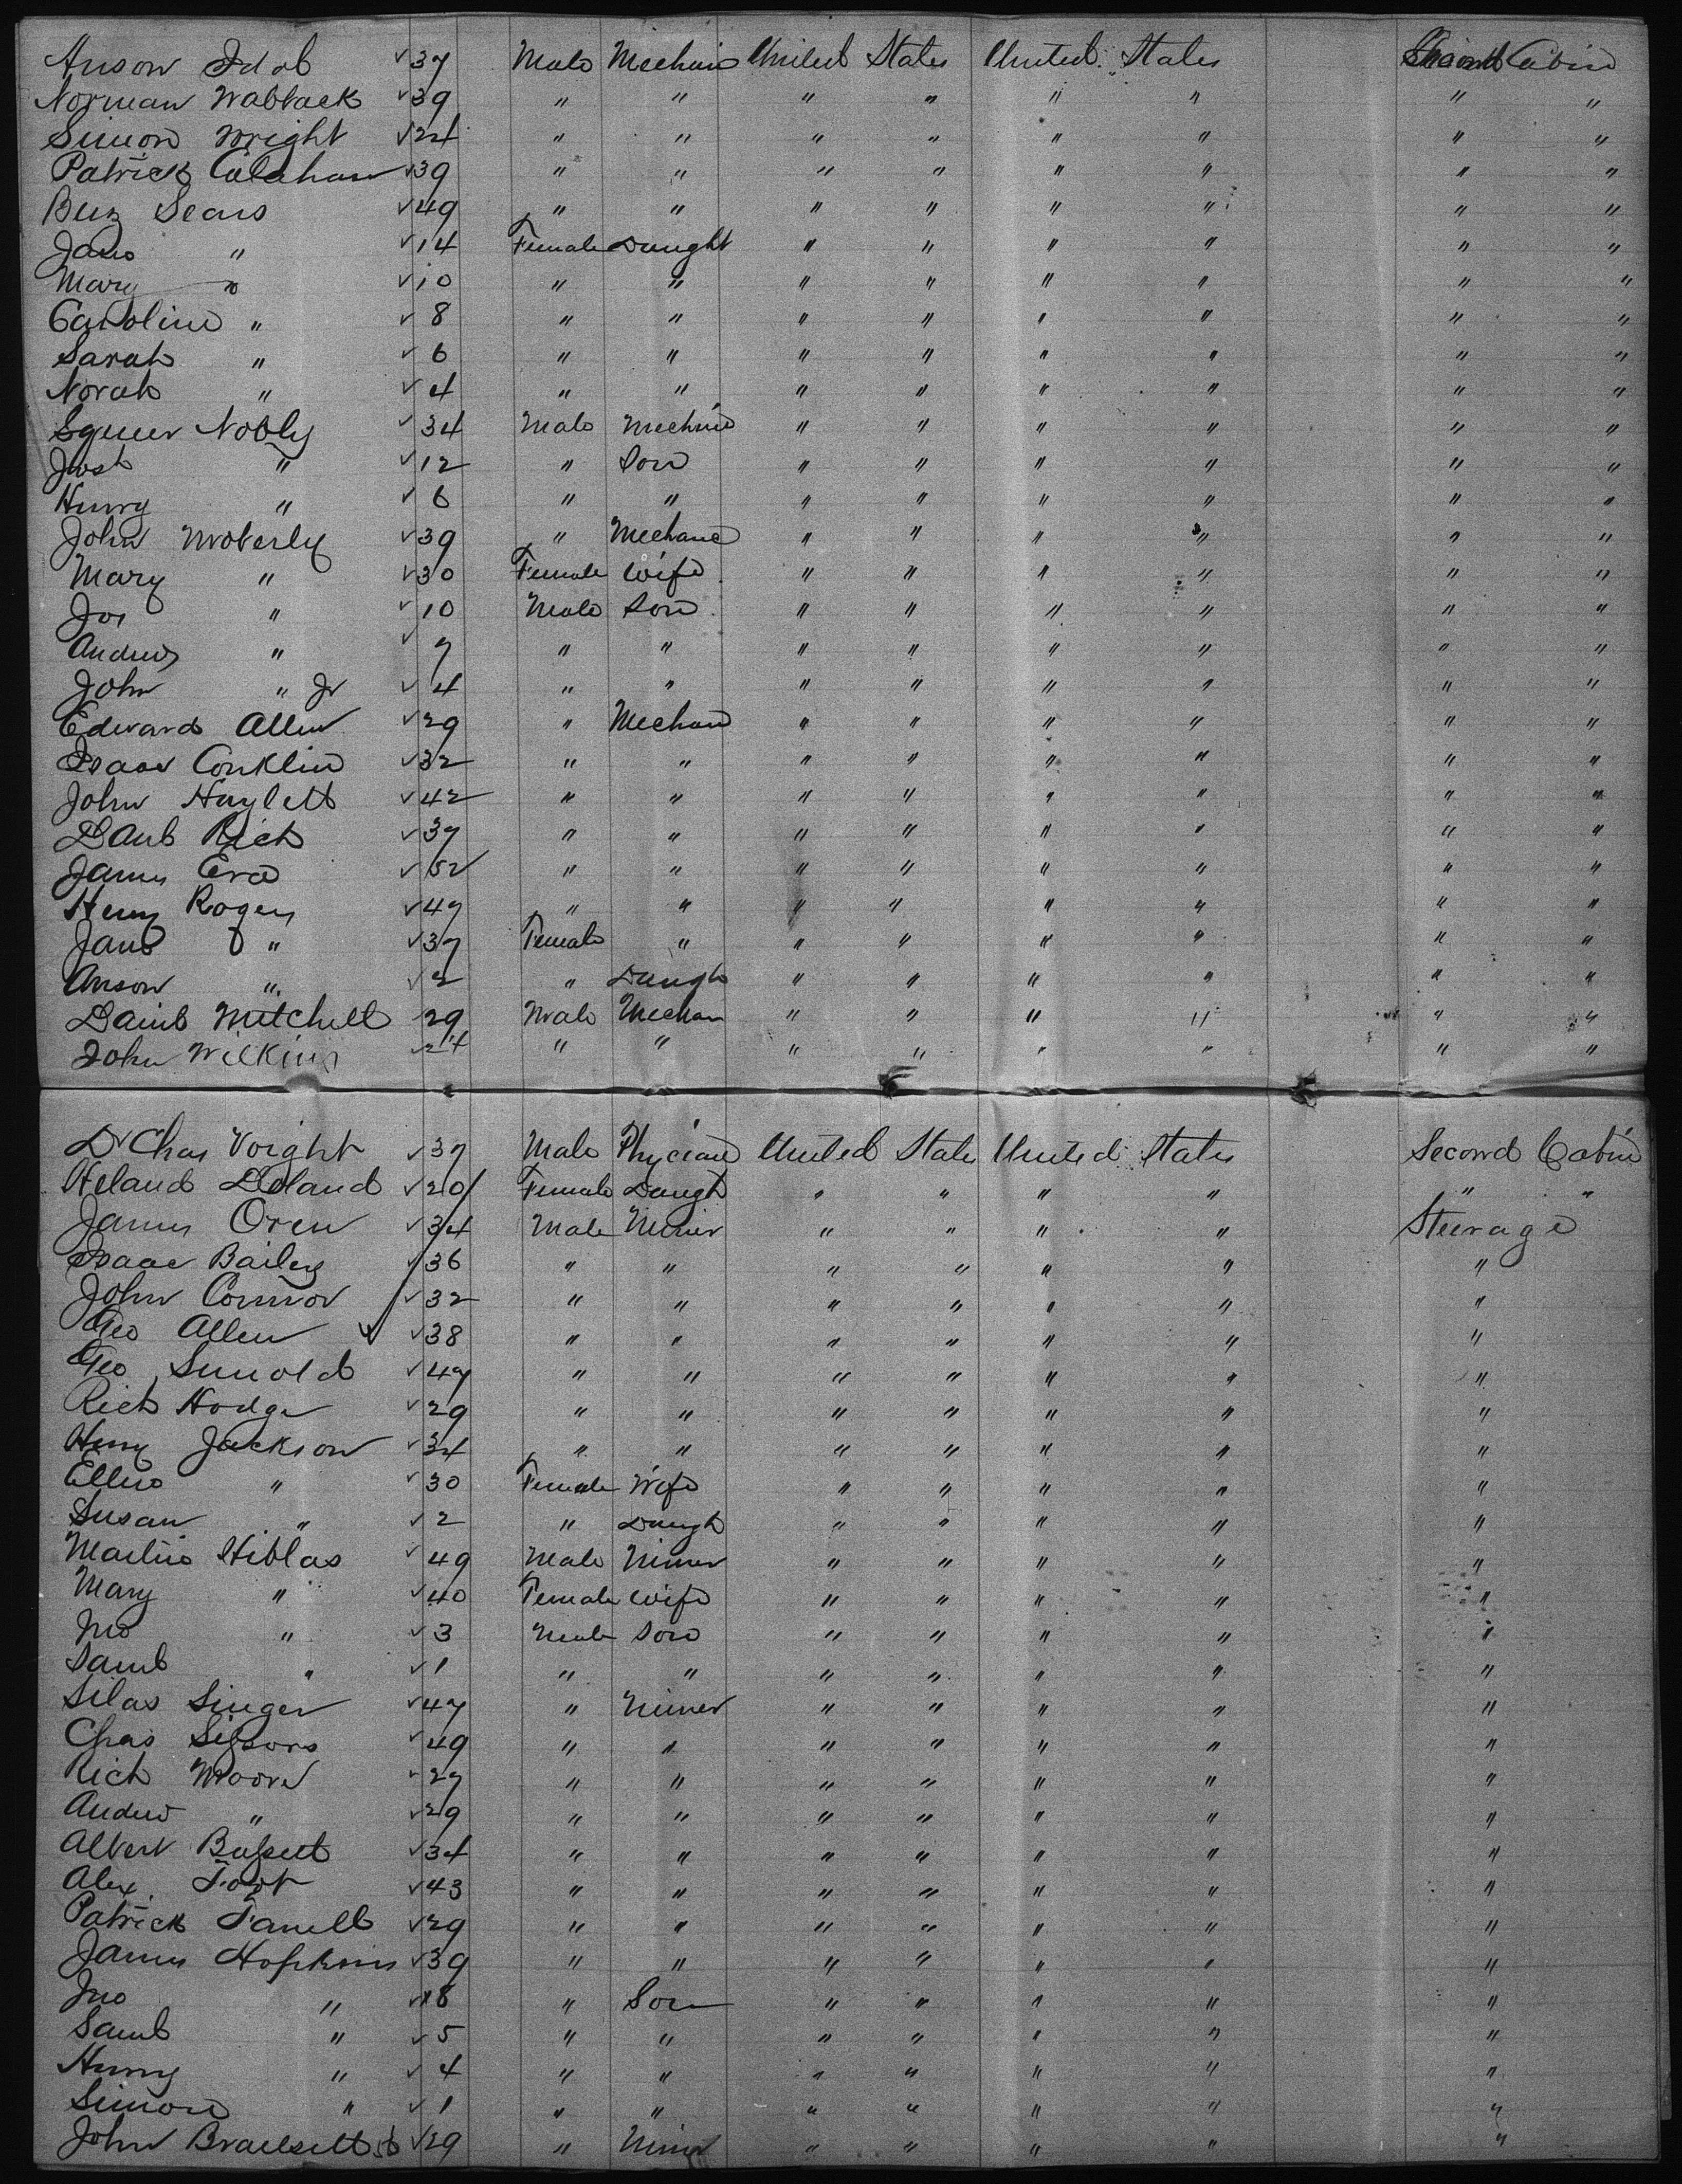 Anson Idol ✓37 Male Mechanic United States United States Second Cabin
Norman Wablack ✓39 " " " " " " " "
Simon Wright ✓24 " " " " " " " "
Patrick Calahan ✓39 " " " " " " " "
Benz Sears ✓49 " " " " " " " "
Jane " ✓14 Female Daught " " " " " "
Mary " ✓10 " " " " " " " "
Caroline " ✓8 " " " " " " " "
Sarah " ✓6 " " " " " " " "
Norah " ✓4 " " " " " " " "
Nobly ✓34 Male Mechnic " " " " " "
Josh " ✓12 " Son " " " " " "
Henry " ✓6 " " " " " " " "
John Moberly ✓39 " Mechanc " " " " " "
Mary " ✓30 Female Wife " " " " " "
Jos " ✓10 Male Son " " " " " "
Andrew " ✓7 " " " " " " " "
John " Jr ✓4 " " " " " " " "
Edward Allen ✓29 " Mechan " " " " " "
Isaac Conklin ✓32 " " " " " " " "
John Haylett ✓42 " " " " " " " "
Danl Rich ✓37 " " " " " " " "
James Era ✓52 " " " " " " " "
Henry Rogers ✓47 " " " " " " " "
Jane " ✓37 Female " " " " " " "
Anson " ✓2 " Daugh " " " " " "
Danl Mitchell 29 Male Mechan " " " " " "
John Wilkins ✓24 " " " " " " " "
Dr Chas Voight ✓37 Male Phycian United States United States Second Cabin
Heland Deland ✓20 Female Daugh " " " " " "
James Oren ✓34 Male Miner " " " " Steerage
Isaac Bailey ✓36 " " " " " " "
John Connor ✓32 " " " " " " "
Geo Allen ✓ ✓38 " " " " " " "
Geo Sunold ✓47 " " " " " " "
Rich Hodge ✓29 " " " " " " "
Henry Jackson ✓34 " " " " " " "
Ellen " ✓30 Female Wife " " " " "
Susan " ✓2 " Daugh " " " " "
Martin Hiblas ✓49 Male Miner " " " " "
Mary " ✓40 Female Wife " " " " "
Jno " ✓3 Male Son " " " " "
Saml " ✓1 " " " " " " "
Silas Singer ✓47 " Miner " " " " "
Chas Sissons ✓49 " " " " " " "
Rich Moore ✓27 " " " " " " "
Andrew " ✓29 " " " " " " "
Albert Bassett ✓34 " " " " " " "
Alex. Foot ✓43 " " " " " " "
Patrick Farrell ✓29 " " " " " " "
James Hopkins ✓39 " " " " " " "
Jno " ✓18 " Son " " " " "
Saml " ✓5 " " " " " " "
Henry " ✓4 " " " " " " "
Simon " ✓1 " " " " " " "
John 56 ✓29 " Miner " " " " "